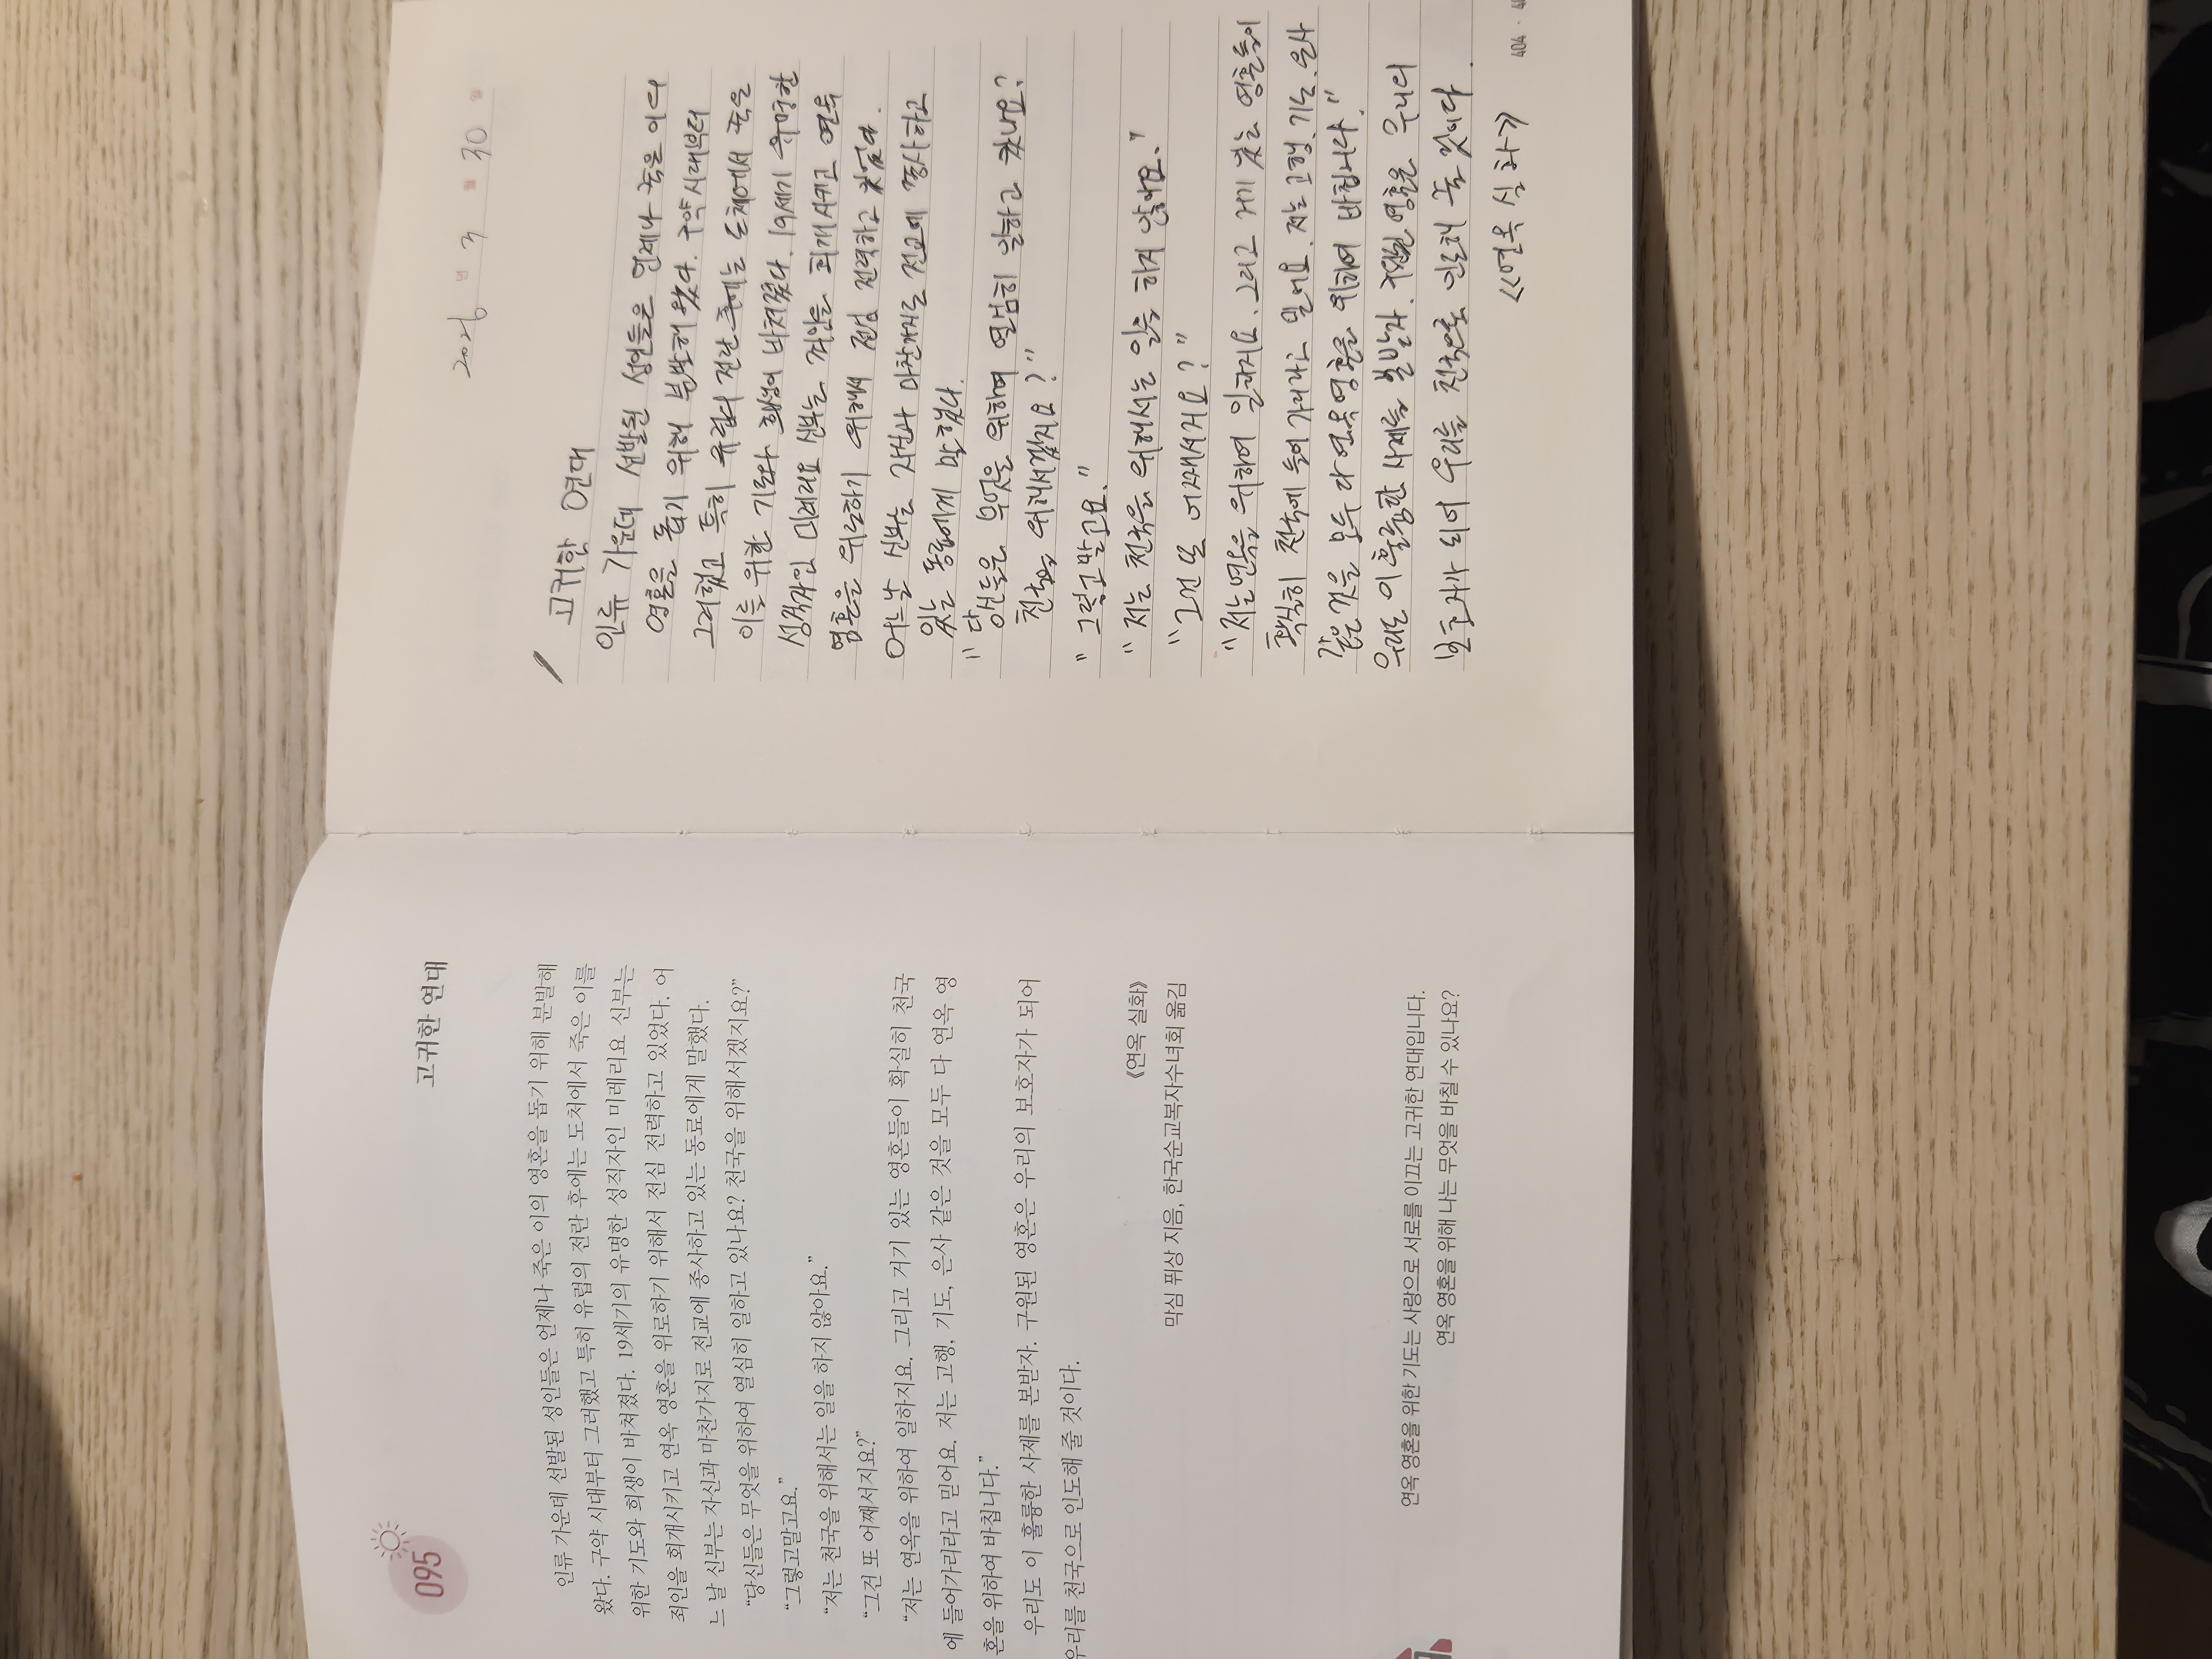 095
고귀한 연대
인류 가운데 선발된 성인들은 언제나 죽은 이의 영혼을 돕기 위해 분발해
왔다. 구약 시대부터 그러했고 특히 유럽의 전란 후에는 도처에서 죽은 이를
위한 기도와 희생이 바쳐졌다. 19세기의 유명한 성직자인 미레리요 신부는
죄인을 회개시키고 연옥 영혼을 위로하기 위해서 전심 전력하고 있었다. 어
느 날 신부는 자신과 마찬가지로 전교에 종사하고 있는 동료에게 말했다.
“당신들은 무엇을 위하여 열심히 일하고 있나요? 천국을 위해서겠지요?”
“그렇고말고요.”
“저는 천국을 위해서는 일을 하지 않아요.”
“그건 또 어째서지요?”
“저는 연옥을 위하여 일하지요. 그리고 거기 있는 영혼들이 확실히 천국
에 들어가리라고 믿어요. 저는 고행, 기도, 은사 같은 것을 모두 다 연옥 영
혼을 위하여 바칩니다.”
우리도 이 훌륭한 사제를 본받자. 구원된 영혼은 우리의 보호자가 되어
우리를 천국으로 인도해 줄 것이다.
《연옥 실화》
막심 퓌상 지음, 한국순교복자수녀회 옮김
연옥 영혼을 위한 기도는 사랑으로 서로를 이끄는 고귀한 연대입니다.
연옥 영혼을 위해 나는 무엇을 바칠 수 있나요?
년 3 월 30 일
고귀한 연대
인류 가운데 선발된 성인들은 언제나 죽은 이의
영혼을 돕기 위해 분발해 왔다. 구약시대부터
그러했고 특히 유럽의 전란 후에는 도처에서 죽은
이를 위한 기도와 희생이 바쳐졌다. 19세기 유명한
성직자인 미레리요 신부는 죄인을 회개시키고 연옥
영혼을 위로하기 위해서 전심 전력하고 있었다.
어느날 신부는 자신과 마찬가지로 전교에 종사하고
있는 동료에게 말했다.
"당신들은 무엇을 위하여 열심히 일하고 있나요?
천국을 위해서겠지요?"
"그렇고말고요."
"저는 천국을 위해서는 일을 하지 않아요."
"그건 또 어째서지요?"
"저는 연옥을 위하여 일하지요. 그리고 거기 있는 영혼들이
확실히 천국에 들어가리라고 믿어요. 저는 고행, 기도, 은사
같은 것을 모두 다 연옥 영혼을 위하여 바칩니다."
우리도 이 훌륭한 사제를 본받자. 구원된 영혼은 우리의
보호자가 되어 우리를 천국으로 인도해 줄 것이다.
《연옥 실화》
404